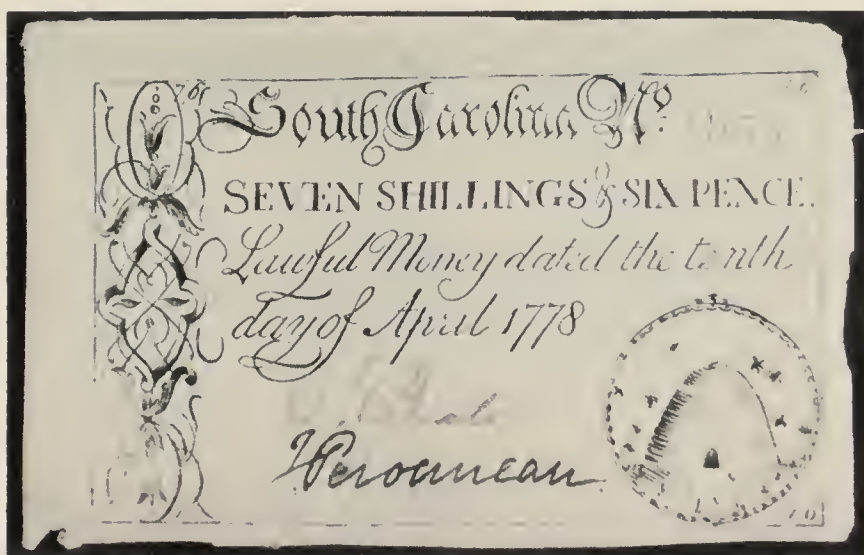 South Carolina No.
SEVEN SHILLINGS & SIX PENCE.
Lawful Money dated the tenth
day of April 1778
Peronneau